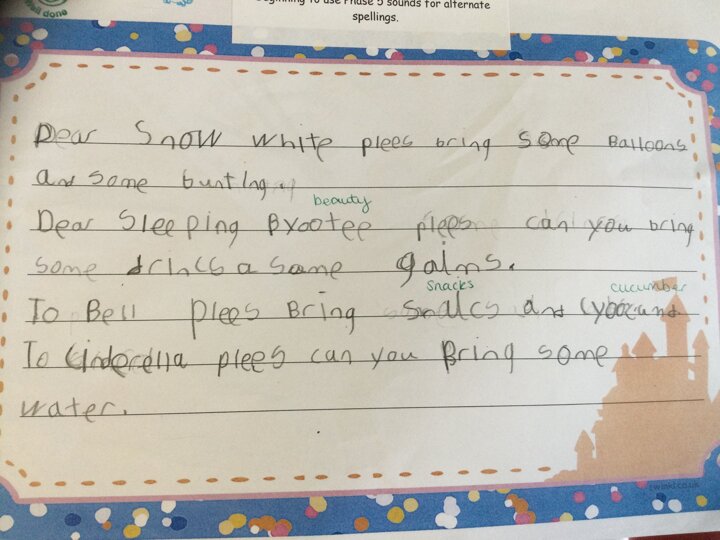 well done
Beginning to use Phase 5 sounds for alternate
spellings.
Dear Snow White plees bring some Balloons
and some bunting.
beauty
Dear Sleeping Byootee plees can you bring
some drincs a some gaims.
snacks cucumber
To Bell plees Bring snalcs and
To Cinderella plees can you Bring some
water.
twinkl.co.uk